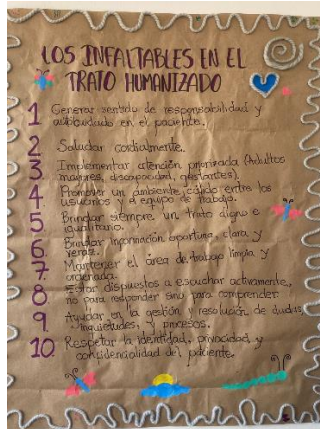 LOS INFALTABLES EN EL
TRATO HUMANIZADO
1 Generar sentido de responsabilidad y
autocuidado en el paciente.
2 Saludar cordialmente.
3 Implementar atención priorizada (Adultos
mayores, discapacidad, gestantes).
4. Promover un ambiente cálido entre los
usuarios y el equipo de trabajo.
5. Brindar siempre un trato digno e
igualitario.
6. Brindar información oportuna, clara y
veraz.
7. Mantener el área de trabajo limpia y
ordenada.
8. Estar dispuestos a escuchar activamente,
no para responder sino para comprender.
9. Ayudar en la gestión y resolución de dudas,
inquietudes, y procesos.
10. Respetar la identidad, privacidad y
confidencialidad del paciente.